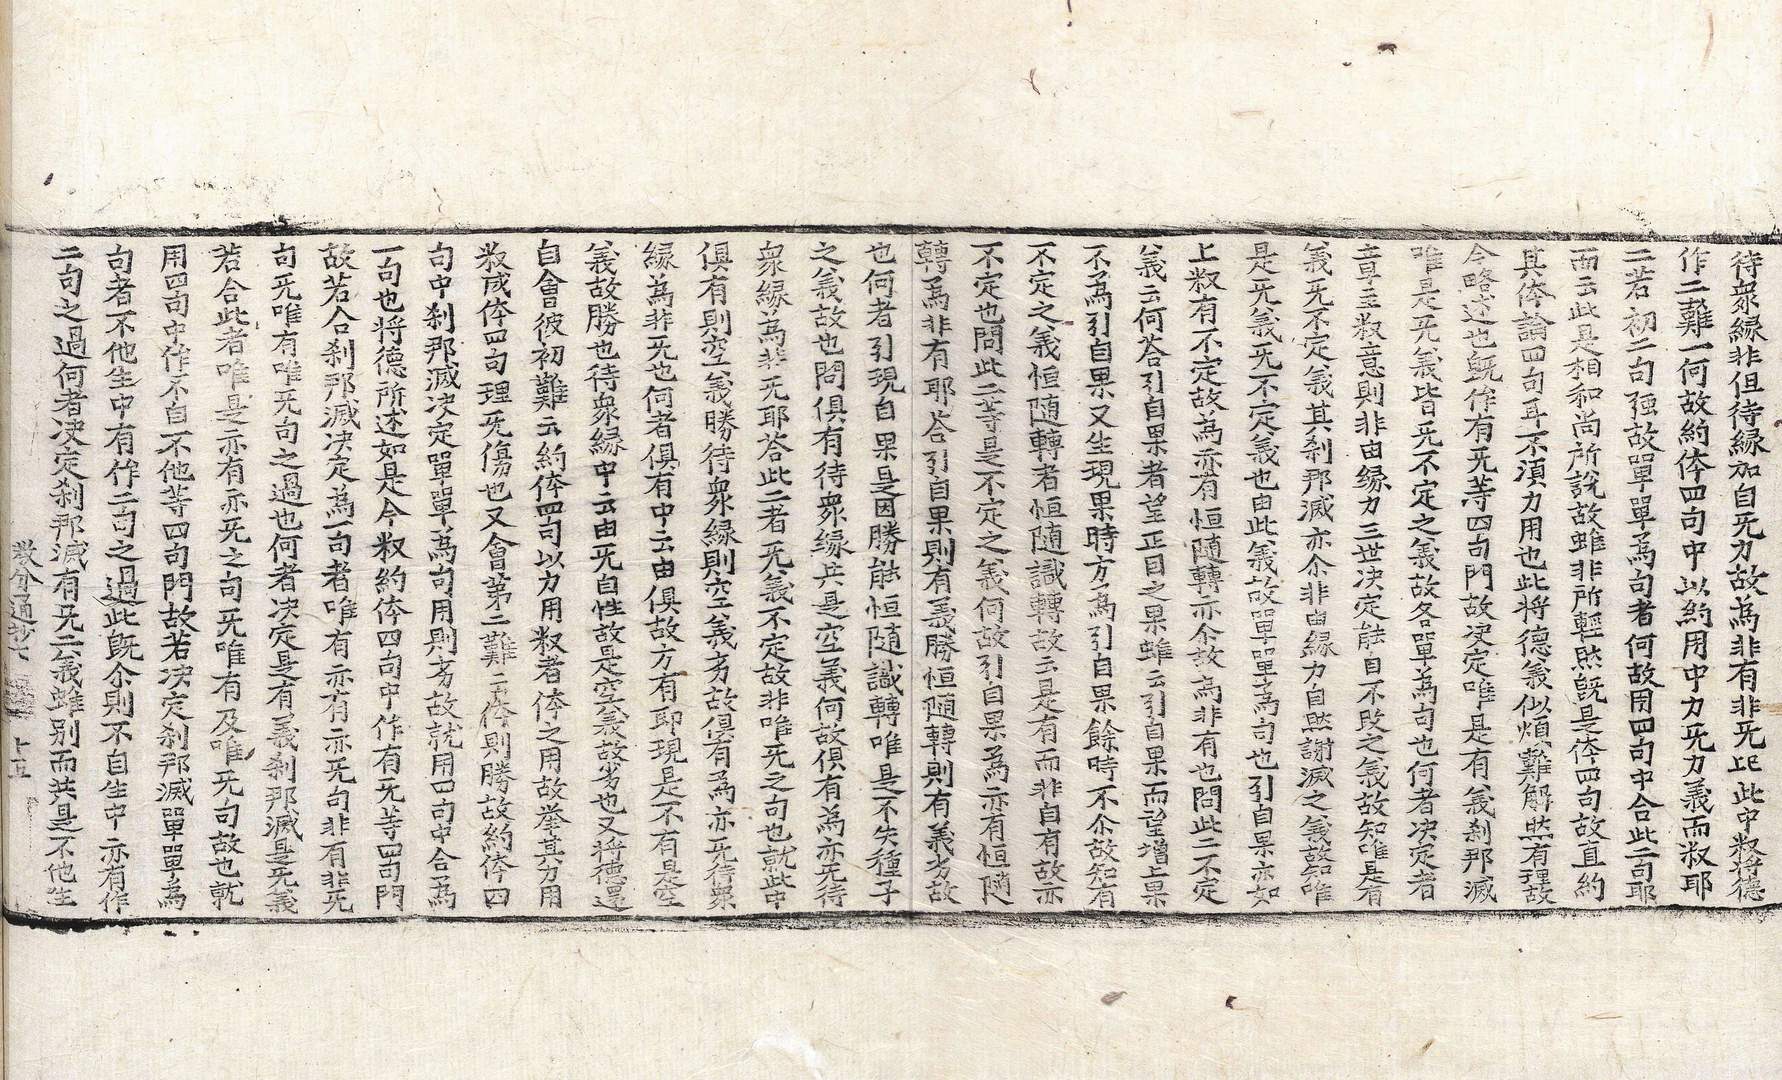 待衆縁非但待縁加自旡力故為非有非旡比此中叙將德
作二難一何故約体四句中以約用中力旡力義而叙耶
二若初二句强故單單為句者何故用四句中合此二句耶
而云此是相和尚所說故雖非所輕然旣是体四句故直約
其体論四句耳不湏力用也此將德義似煩難解然有理故
今略述也旣作有旡等四句門故决定唯是有義刹那滅
唯是旡義皆旡不定之義故各單為句也何者决定者
章主叙意則非由縁力三世决定能自不改之義故知唯是有
義旡不定義其刹那滅亦尒非由縁力自然謝滅之義故知唯
是旡義旡不定義也由此義故單單為句也引自果亦如
上叙有不定故為亦有恒随轉亦尒故為非有也問此二不定
義云何荅引自果者望正目之果雖云引自果而望增上果
不為引自果又生現果時方為引自果餘時不尒故知有
不定之義恒随轉者恒随識轉故云是有而非自有故亦
不定也問此二等是不定之義何故引自果為亦有恒隨
轉為非有耶荅引自果則有義勝恒随轉則有義劣故
也何者引現自果是因勝能恒随識轉唯是不失種子
之義故也問俱有待衆縁共是空義何故俱有為亦旡待
衆緣為非旡耶荅此二者旡義不定故非唯旡之句也就此中
俱有則空義勝待衆緣則空義劣故俱有為亦旡待衆
緣為非旡也何者俱有中云由俱故方有即現是不有是空
義故勝也待衆緣中云由旡自性故是空義故劣也又將德還
自會彼初難云約体四句以力用叙者体之用故挙其力用
叙成体四句理旡傷也又會苐二難云体則勝故約体四
句中刹那滅决定單單為句用則劣故就用四句中合為
一句也将德所述如是今叙約体四句中作有旡等四句門
故若合刹那滅决定為一句者唯有亦有亦旡句非有非旡
句旡唯有唯旡句之過也何者决定是有義刹那滅是旡義
若合此者唯是亦有亦旡之句旡唯有及唯旡句故也就
用四句中作不自不他等四句門故若决定刹那滅單單為
句者不他生中有作二句之過此旣尒則不自生中亦有作
二句之過何者决定刹那滅有旡二義雖别而共是不他生
敎分通抄七 十五